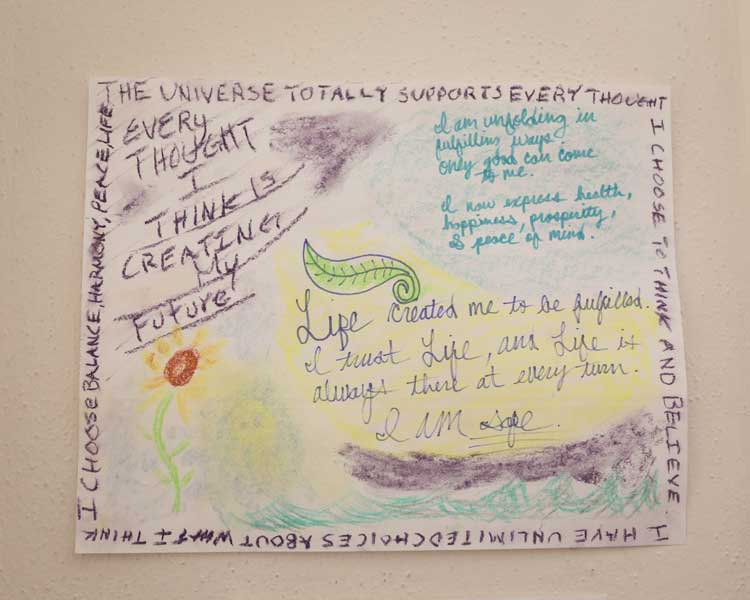 THE UNIVERSE TOTALLY SUPPORTS EVERY THOUGHT
I CHOOSE TO THINK AND BELIEVE
I HAVE UNLIMITED CHOICES ABOUT WHAT I THINK
I CHOOSE BALANCE, HARMONY, PEACE, LIFE
EVERY
THOUGHT
I
THINK IS
CREATING
My
Future!
I am unfolding in
fulfilling ways.
Only good can come
to me.
I now express health,
happiness, prosperity,
& peace of mind.
Life created me to be fulfilled.
I trust Life, and Life is
always there at every turn.
I AM safe.